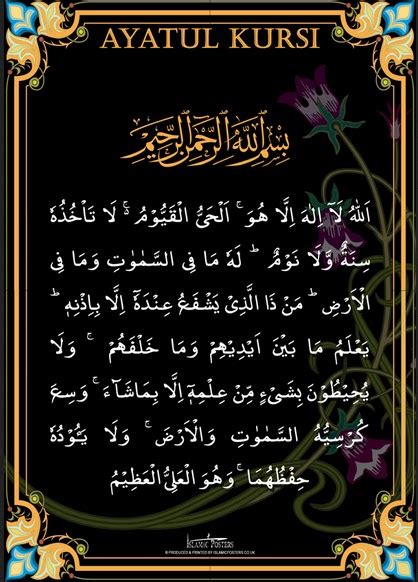 AYATUL KURSI
بِسْمِ اللهِ الرَّحْمٰنِ الرَّحِيْمِ
اَللهُ لَآ اِلٰهَ اِلَّا هُوَ ۚ اَلْحَیُّ الْقَیُّوْمُ ۚ۬ لَا تَاْخُذُهٗ
سِنَةٌ وَّلَا نَوْمٌ ؕ لَهٗ مَا فِی السَّمٰوٰتِ وَمَا فِی
الْاَرْضِ ؕ مَنْ ذَا الَّذِیْ یَشْفَعُ عِنْدَهٗۤ اِلَّا بِاِذْنِهٖ ؕ
یَعْلَمُ مَا بَیْنَ اَیْدِیْهِمْ وَمَا خَلْفَهُمْ ۚ وَلَا
یُحِیْطُوْنَ بِشَیْءٍ مِّنْ عِلْمِهٖۤ اِلَّا بِمَاشَآءَ ۚ وَسِعَ
كُرْسِیُّهُ السَّمٰوٰتِ وَالْاَرْضَ ۚ وَلَا یَـُٔوْدُهٗ
حِفْظُهُمَا ۚ وَهُوَ الْعَلِیُّ الْعَظِیْمُ
ISLAMIC POSTERS
© PRODUCED & PRINTED BY ISLAMICPOSTERS.CO.UK